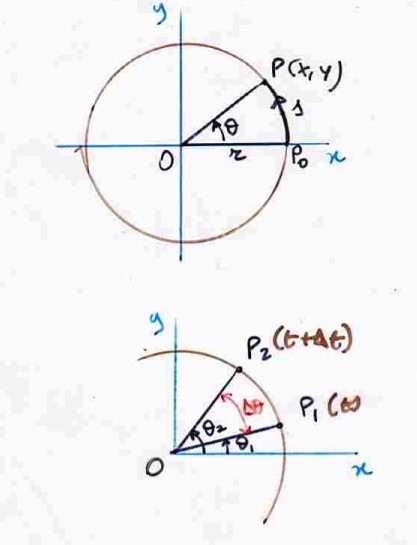 y
P(x, y)
s
θ
O
r
P₀
x
y
P₂(t+Δt)
Δθ
P₁(t)
θ₂
θ₁
O
x